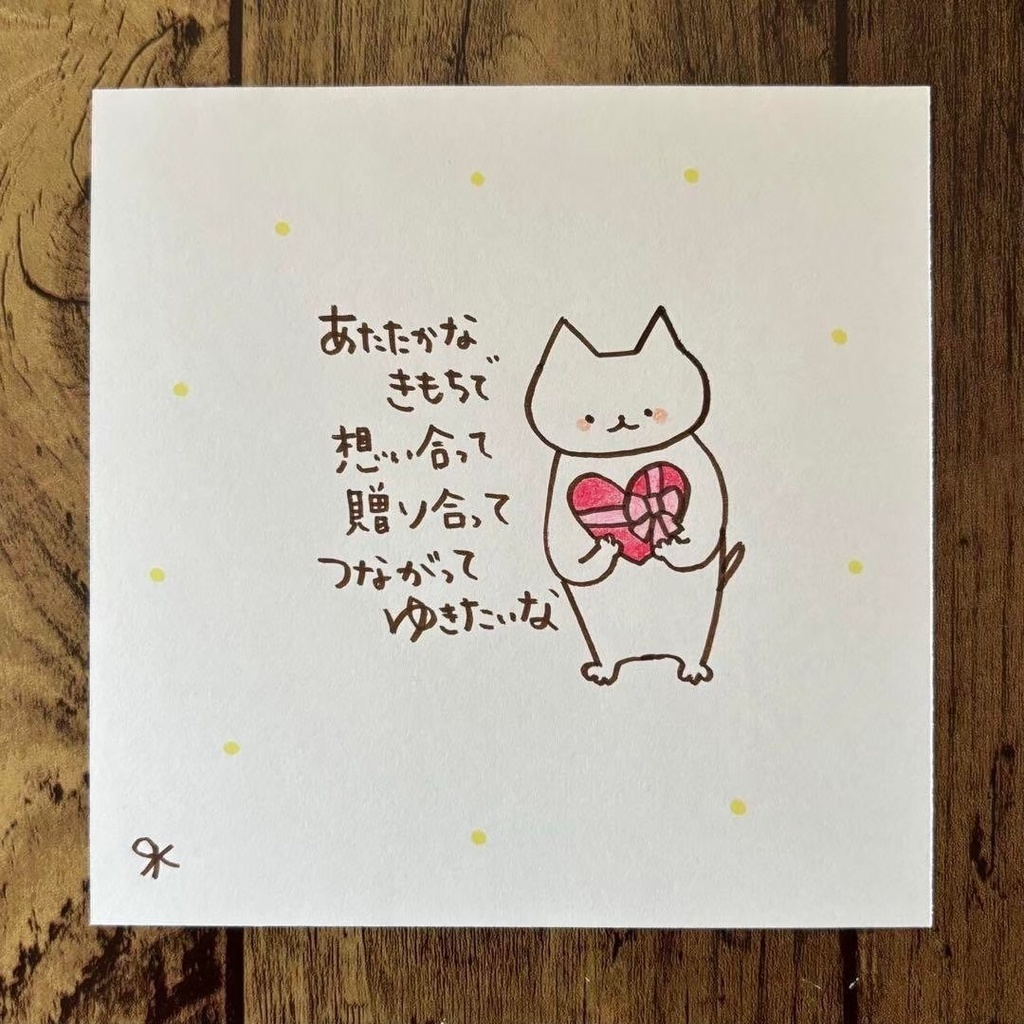 あたたかな
きもちで
想い合って
贈り合って
つながって
ゆきたいな